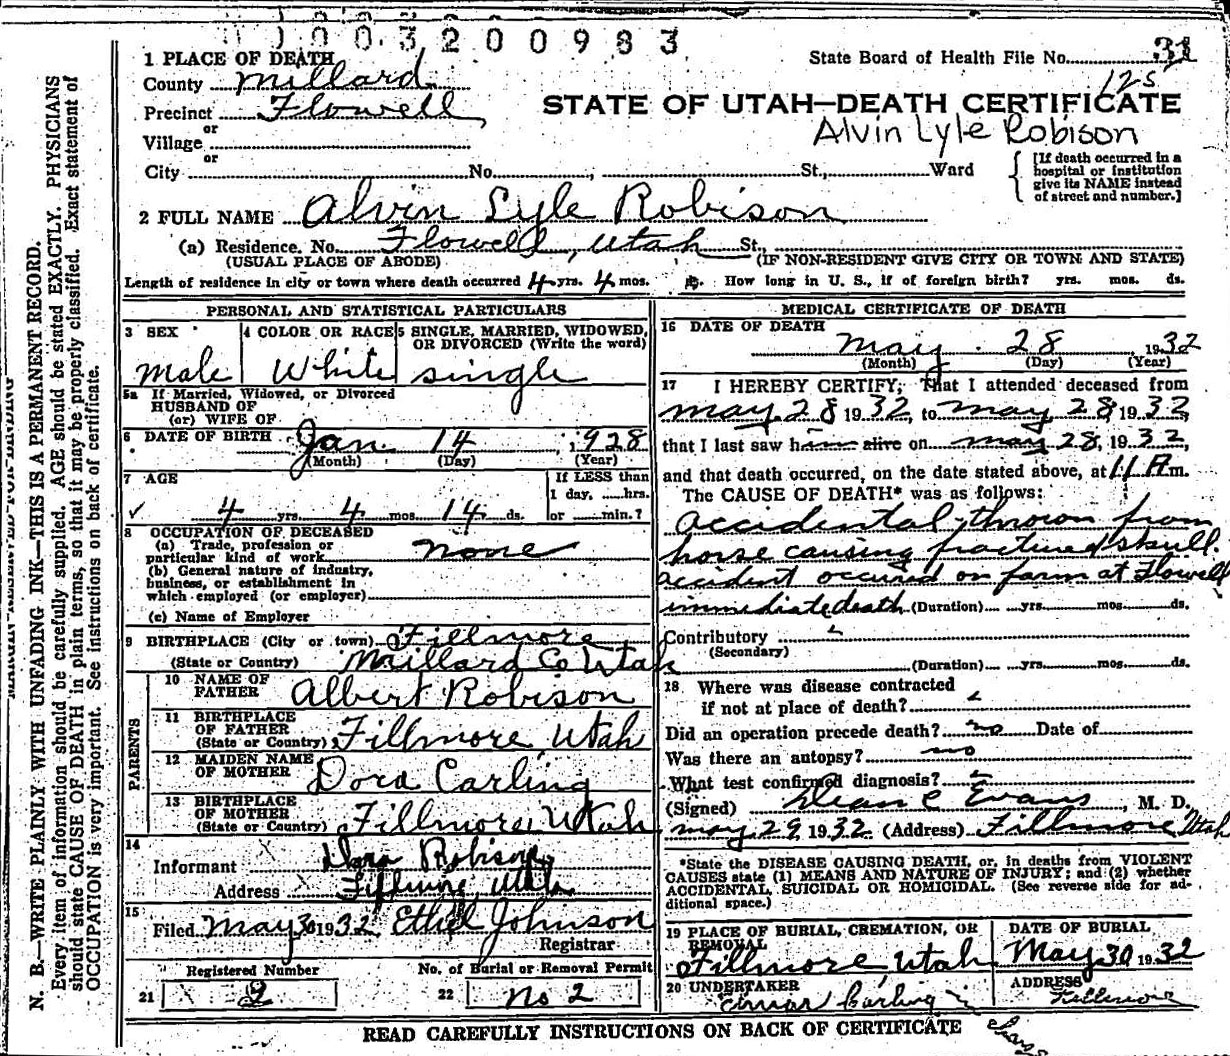 1003200983
1 PLACE OF DEATH
State Board of Health File No. 31
125
County Millard
Precinct Flowell
STATE OF UTAH—DEATH CERTIFICATE
or
Village
Alvin Lyle Robison
or
City No. , St., Ward
[If death occurred in a
hospital or institution
give its NAME instead
of street and number.]
2 FULL NAME Alvin Lyle Robison
(a) Residence. No. Flowell, Utah St.,
(USUAL PLACE OF ABODE) (IF NON-RESIDENT GIVE CITY OR TOWN AND STATE)
Length of residence in city or town where death occurred 4 yrs. 4 mos. ds. How long in U. S., if of foreign birth? yrs. mos. ds.
PERSONAL AND STATISTICAL PARTICULARS
3 SEX
Male
4 COLOR OR RACE
White
5 SINGLE, MARRIED, WIDOWED,
OR DIVORCED (Write the word)
single
5a If Married, Widowed, or Divorced
HUSBAND OF
(or) WIFE OF
6 DATE OF BIRTH Jan 14, 1928
(Month) (Day) (Year)
7 AGE
4 yrs. 4 mos. 14 ds.
If LESS than
1 day, hrs.
or min.?
8 OCCUPATION OF DECEASED
(a) Trade, profession or
particular kind of work none
(b) General nature of industry,
business, or establishment in
which employed (or employer)
(c) Name of Employer
9 BIRTHPLACE (City or town) Fillmore
(State or Country) Millard Co Utah
PARENTS
10 NAME OF
FATHER Albert Robison
11 BIRTHPLACE
OF FATHER
(State or Country) Fillmore, Utah
12 MAIDEN NAME
OF MOTHER Dora Carling
13 BIRTHPLACE
OF MOTHER
(State or Country) Fillmore, Utah
14
Informant Dora Robison
Address Fillmore, Utah
15
Filed May 30 1932 Ethel Johnson
Registrar
Registered Number No. of Burial or Removal Permit
21 2 22 No 2
MEDICAL CERTIFICATE OF DEATH
16 DATE OF DEATH
May 28 1932
(Month) (Day) (Year)
17 I HEREBY CERTIFY, That I attended deceased from
May 28 1932, to May 28, 1932,
that I last saw him alive on May 28, 1932,
and that death occurred, on the date stated above, at 11 A m.
The CAUSE OF DEATH* was as follows:
accidental, thrown from
horse causing fractured skull.
accident occured on farm at Flowell
immediate death (Duration) yrs. mos. ds.
Contributory
(Secondary)
(Duration) yrs. mos. ds.
18 Where was disease contracted
if not at place of death?
Did an operation precede death? no Date of
Was there an autopsy? no
What test confirmed diagnosis?
(Signed) Dean C Evans, M. D.
May 29 1932 (Address) Fillmore Utah
*State the DISEASE CAUSING DEATH, or, in deaths from VIOLENT
CAUSES state (1) MEANS AND NATURE OF INJURY; and (2) whether
ACCIDENTAL, SUICIDAL OR HOMICIDAL. (See reverse side for ad-
ditional space.)
19 PLACE OF BURIAL, CREMATION, OR
REMOVAL
Fillmore, Utah
DATE OF BURIAL
May 30 1932
20 UNDERTAKER
Carling
ADDRESS
Fillmore
READ CAREFULLY INSTRUCTIONS ON BACK OF CERTIFICATE
N. B.—WRITE PLAINLY WITH UNFADING INK—THIS IS A PERMANENT RECORD.
Every item of information should be carefully supplied. AGE should be stated EXACTLY. PHYSICIANS
should state CAUSE OF DEATH in plain terms, so that it may be properly classified. Exact statement of
OCCUPATION is very important. See instructions on back of certificate.